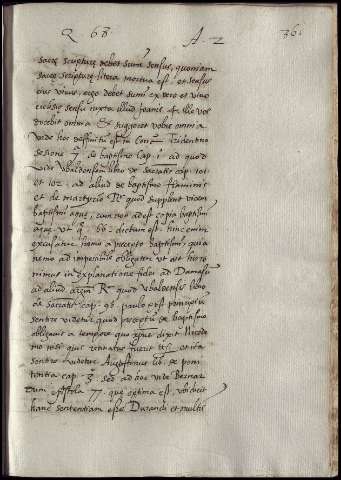 Q 68 A 2 361
sacrę scripturę debet sumi sensus, quoniam
sacrę scripturę litera mortua est, et sensus
eius vivus, ergo debet sumi ex vero et vivo
ecclesię sensu iuxta illud Joanis. 4. ille vos
docebit omnia Et suggeret vobis omnia
vide hoc deffinitum est in Conci. Tridentino
sesione 7 de baptismo cap. 1. ad quod
vide Vbaldensem libro de sacratis cap. 101
et 102. ad aliud de baptismo flaminis
et de martyrio R. quod supplent vicem
baptismi aquę, cum non adest copia baptismi
aquę ut q. 66. dictum est. tunc enim
excusatur homo a precepto baptismi, quia
nemo ad imposibile obligatur ut ait hiero
nimus in explanatione fidei ad Damasū
ad aliud argm R. quod Vbaldensis libro
de sacratis cap. 96. paulo post principiū
sentire videtur quod preceptū de baptismo
obligavit a tempore quo xpus dixit Nicode
mo nisi quis renatus fuerit &c. et ita
sentire videtur Augustinus lib. de poeni
tentia cap. 3. sed ad hoc vide Bernar
dum epistola 77. quę optima est, ubi dicit
hanc sententiam esse Durandi et multis